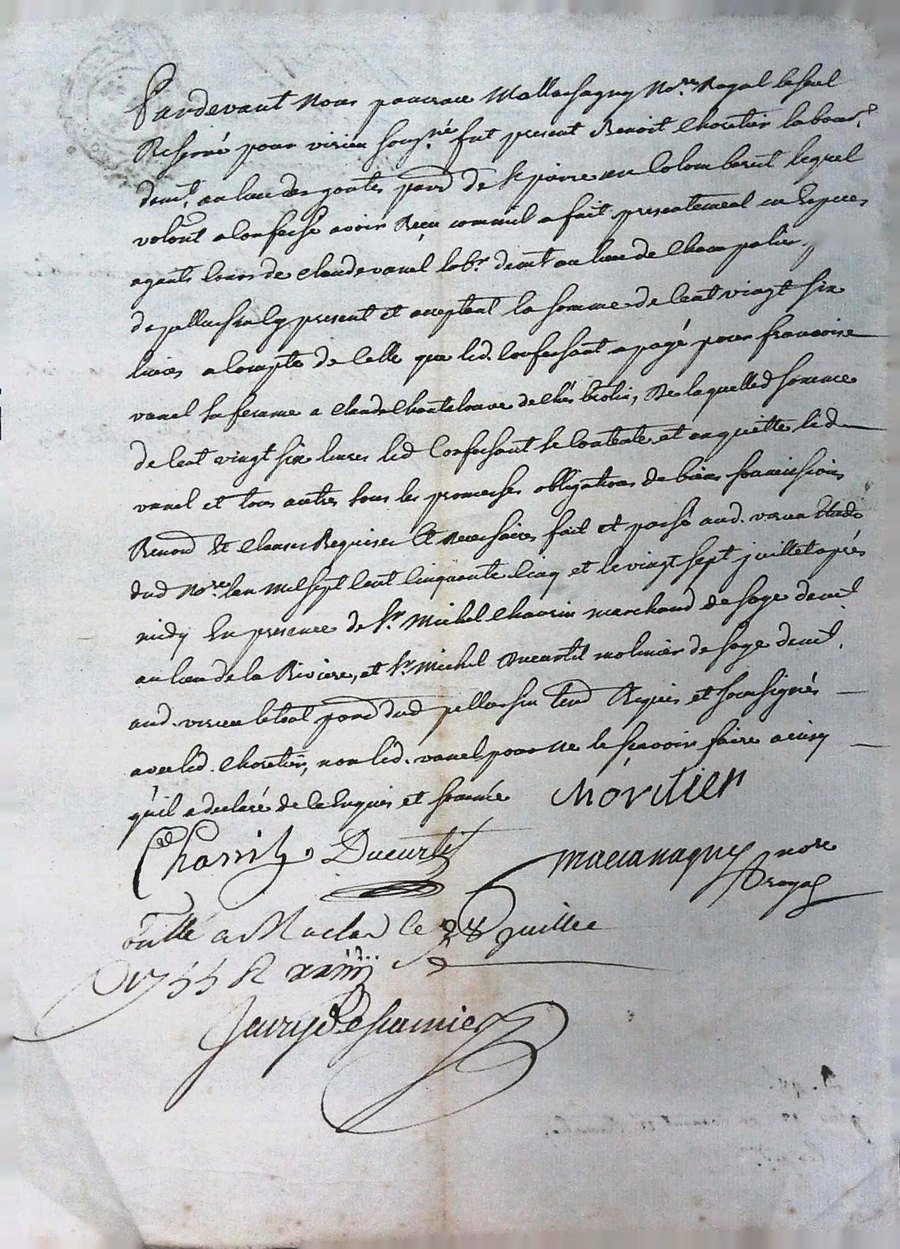 Pardevant Nous pancrace Mallassagny No.re Royal le seul
Reservé pour virieu soug.né fut present Benoit Choretier labour.r
dem.t au lieu des goutes parr.e de St pierre en Colombaret lequel
volont. a Confessé avoir Reçu comme il a fait presentement en Especes
agents Cours de Claude vanel lab.r dem.t au lieu de Champalier
de pellussin Cy present et acceptant la somme de Cent vingt six
livres a Compte de Celle que led. Confessant a payé pour francoise
vanel sa femme a Claude Chantelouve de Ches brolin, De laquelle d somme
de Cent vingt six livres led Confessant se Contente et en quitte led
vanel et tous autres sous les promesses obligations de biens soumissions
Renond Et Clauses Requises Et Necessaires fait et passé aud. virieu Etude
dud No.re Lan Mil sept Cent Cinquante Cinq et le vingt sept juillet après
midy En presence de S.r Michel Chavrin marchand de soye dem.t
au lieu de la Riviere, et S.r Michel Ducurtil molinier de soye dem.t
aud. virieu le tout parr.e dud pellussin temd Requis et soussignés
avec led. Choretier, non led. vanel pour ne le sçavoir faire ainsy
qu'il a declaré de ce Enquis et sommé Choretier
Ducurtil
nore
royal
a Maclas le 28 juillet
1755 R